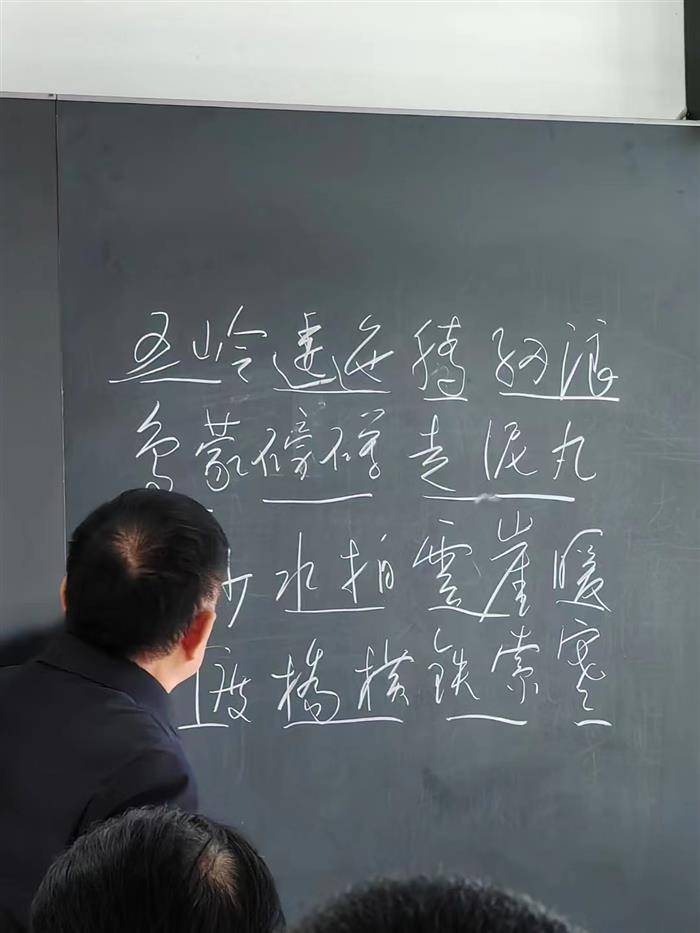 五岭逶迤腾细浪
乌蒙磅礴走泥丸
沙水拍雲崖暖
渡桥横铁索寒